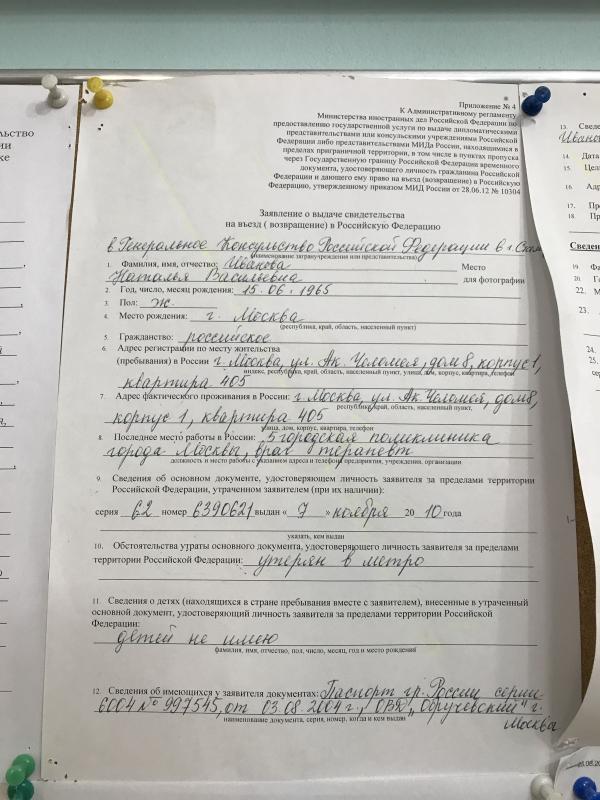 Приложение № 4
К Административному регламенту
Министерства иностранных дел Российской Федерации по
предоставлению государственной услуги по выдаче дипломатическими
представительствами или консульскими учреждениями Российской
Федерации либо представительствами МИДа России, находящимися в
пределах приграничной территории, в том числе в пунктах пропуска
через Государственную границу Российской Федерации временного
документа, удостоверяющего личность гражданина Российской
Федерации и дающего ему право на въезд (возвращение) в Российскую
Федерацию, утвержденному приказом МИД России от 28.06.12 № 10304
Заявление о выдаче свидетельства
на въезд ( возвращение) в Российскую Федерацию
в Генеральное Консульство Российской Федерации в г.
(наименование загранучреждения или представительства)
1. Фамилия, имя, отчество: Иванова Место
Наталья Васильевна для фотографии
2. Год, число, месяц рождения: 15.06.1965
3. Пол: ж
4. Место рождения: г. Москва
(республика, край, область, населенный пункт)
5. Гражданство: российское
6. Адрес регистрации по месту жительства
(пребывания) в России г. Москва, ул. Ак. Челомея, дом 8, корпус 1,
квартира 405
индекс, республика, край, область, населенный пункт, улица, дом, корпус, квартира, телефон
7. Адрес фактического проживания в России: г. Москва, ул. Ак. Челомея, дом 8,
республика, край, область, населенный пункт,
корпус 1, квартира 405
улица, дом, корпус, квартира, телефон
8. Последнее место работы в России: 5 городская поликлиника
города Москвы, врач терапевт
должность и место работы с указанием адреса и телефона предприятия, учреждения, организации
9. Сведения об основном документе, удостоверяющем личность заявителя за пределами территории
Российской Федерации, утраченном заявителем (при их наличии):
серия 62 номер 6390621 выдан « 7 » ноября 20 10 года
указать, кем выдан
10. Обстоятельства утраты основного документа, удостоверяющего личность заявителя за пределами
территории Российской Федерации: утерян в метро
11. Сведения о детях (находящихся в стране пребывания вместе с заявителем), внесенные в утраченный
основной документ, удостоверяющий личность заявителя за пределами территории Российской
Федерации:
детей не имею
фамилия, имя, отчество, пол, число, месяц, год и место рождения
12. Сведения об имеющихся у заявителя документах: Паспорт гр. России серии
6004 № 997545, от 03.08.2004 г., ОВД „Обручевский" г.
наименование документа, серия, номер, когда и кем выдан
Москва
13. Сведе
14. Дата
15. Цел
16. Адр
17. Пр
18. Пр
Сведен
19. Фа
20. Го
22. М
23.
24.
25.